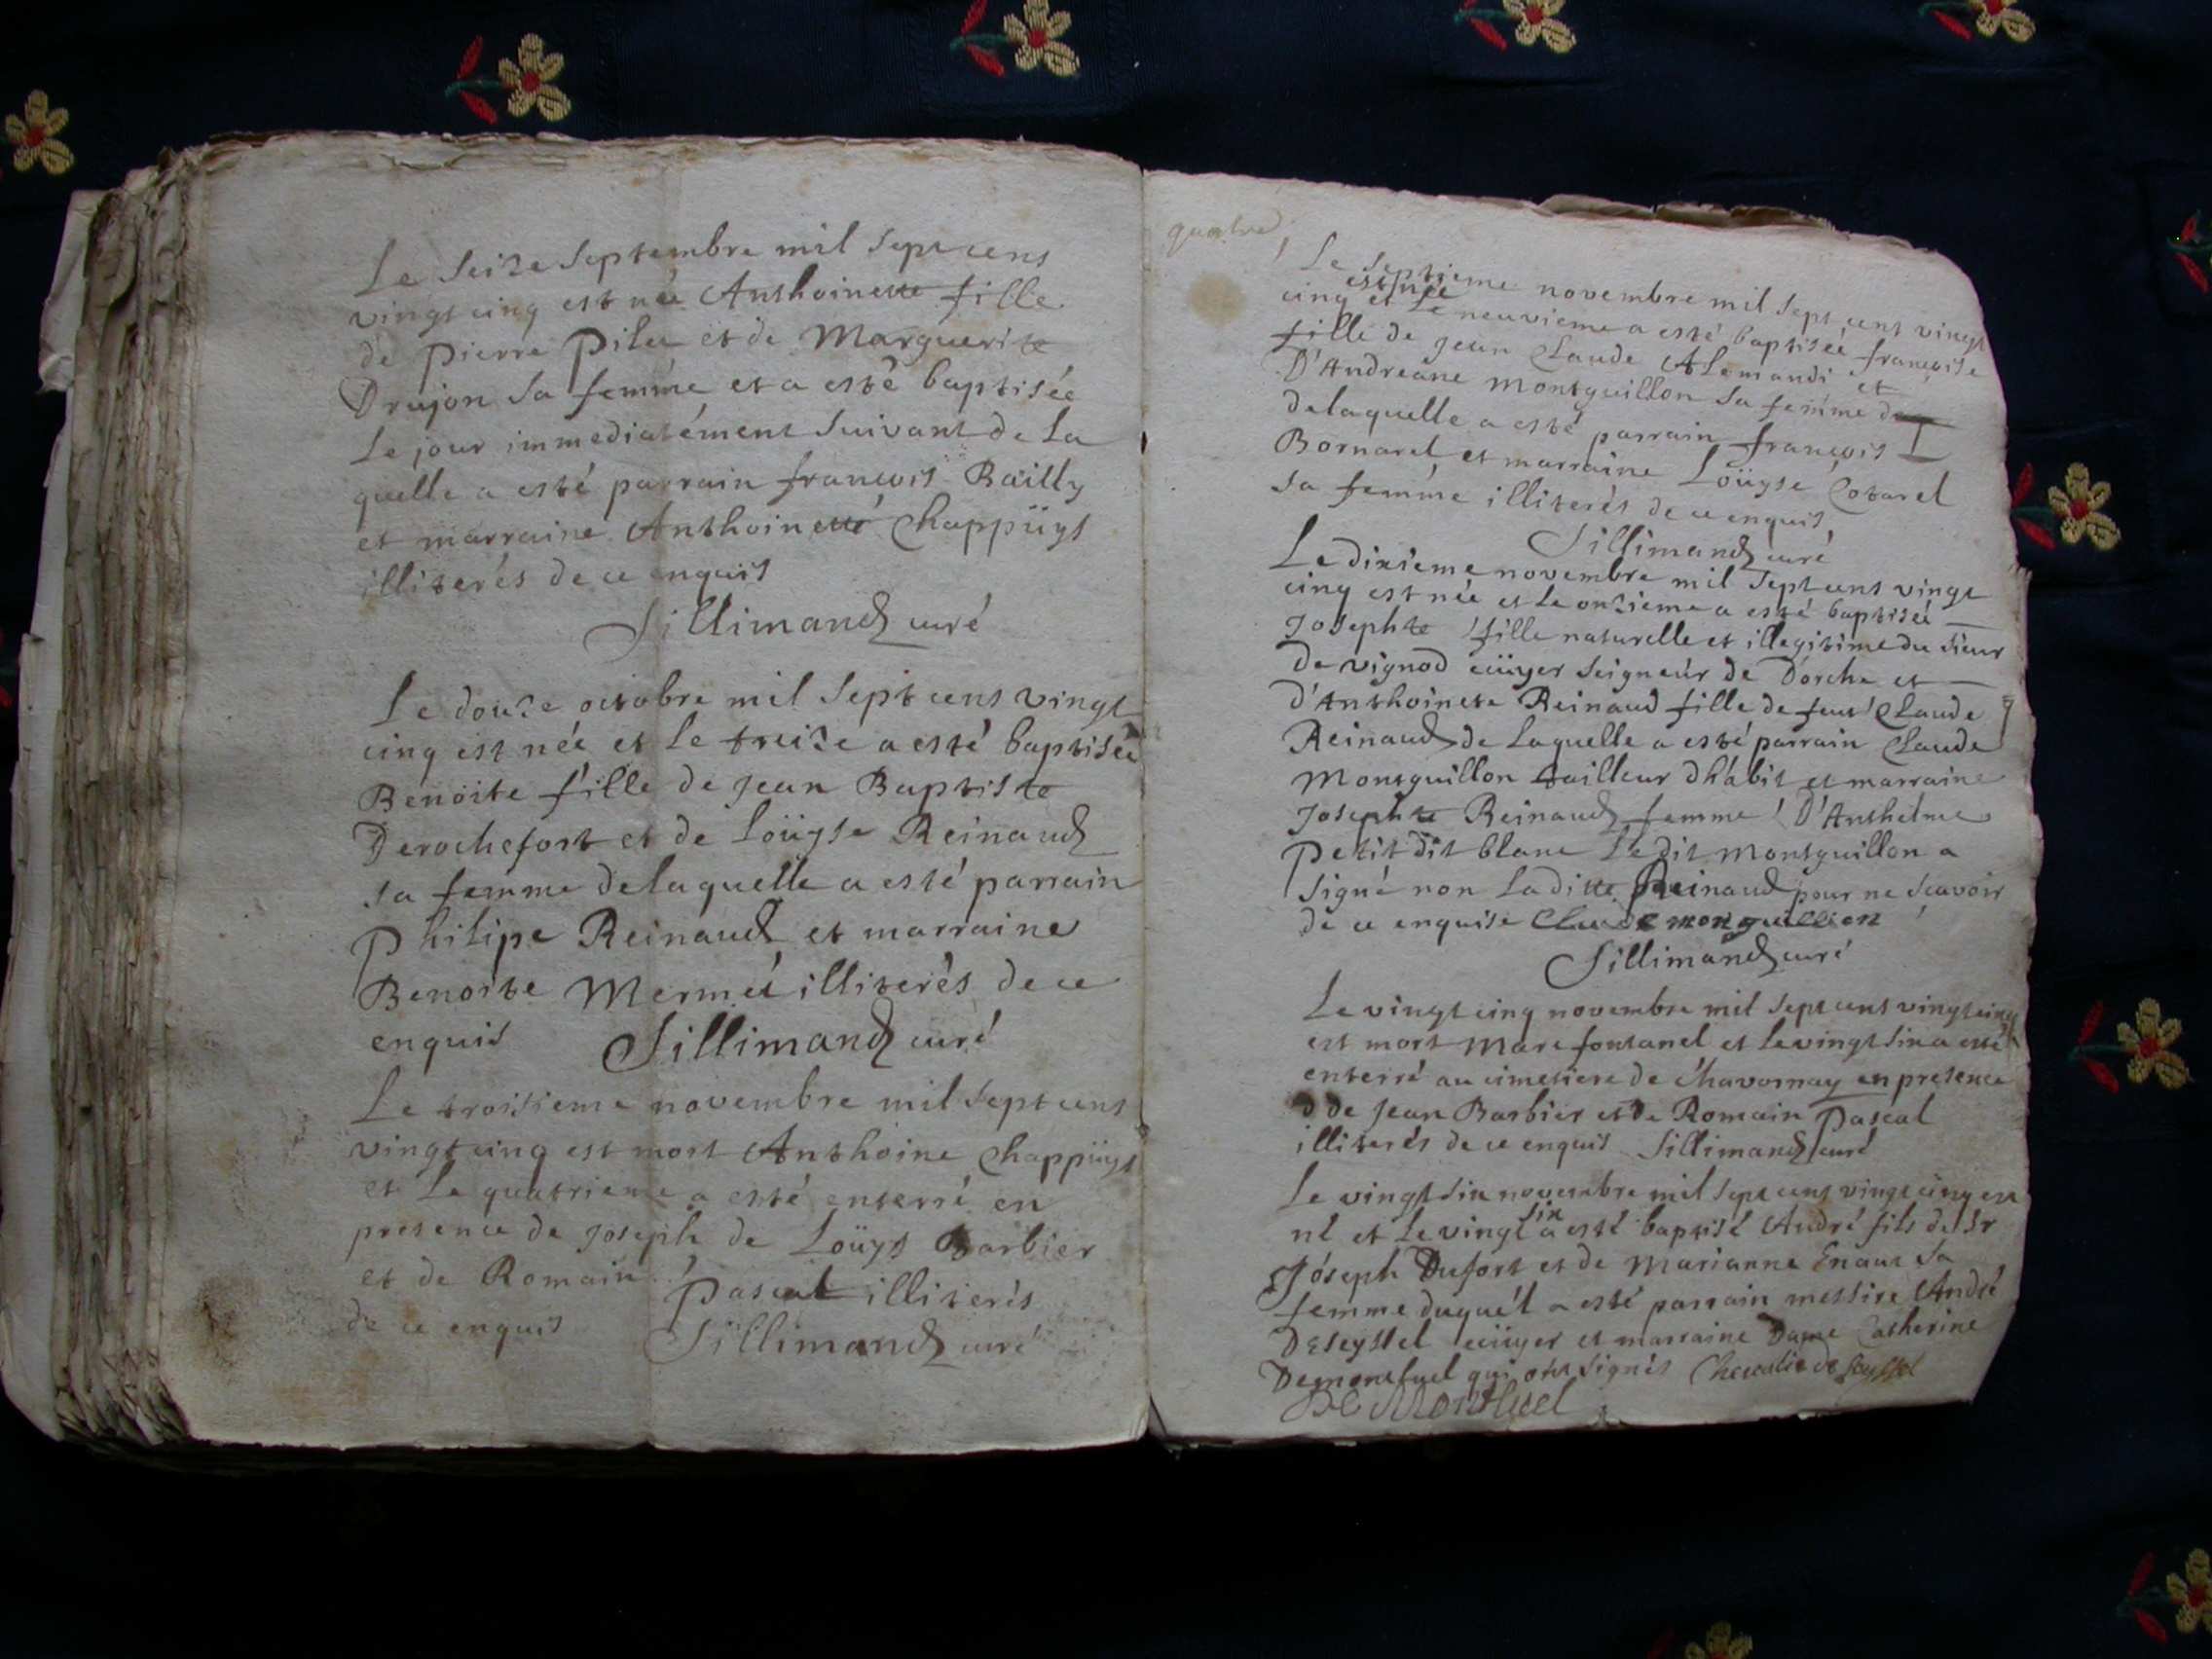 Le seize septembre mil sept cens
vingt cinq est née Anthoinette fille
de pierre pilu et de Marguerite
Drujon sa femme et a esté baptisée
le jour immediatement suivant de la
quelle a esté parrain françois Bailly
et marraine Anthoinette Chappüys
illiterés de ce enquis
Sillimand curé
Le douze octobre mil sept cens vingt
cinq est née et le treize a esté baptisée
Benoite fille de jean Baptiste
Derochefort et de Loüyse Reinaud
sa femme delaquelle a esté parrain
philipe Reinaud et marraine
Benoite Mermet illiterés de ce
enquis Sillimand curé
Le troisieme novembre mil sept cens
vingt cinq est mort Anthoine Chappüys
et le quatrieme a esté enterré en
presence de joseph de Loüys Barbier
et de Romain pascal illiterés
de ce enquis Sillimand curé
quatre
Le septieme novembre mil sept cens vingt
est née
cinq et le neuvieme a esté baptisée françoise
fille de jean Claude Alemandi et
D'Andreane Montguillon sa femme
delaquelle a esté parrain françois
Bornarel et marraine Loüyse Cotarel
sa femme illiterés de ce enquis
Sillimand curé
Le dixieme novembre mil sept cens vingt
cinq est née et le onzieme a esté baptisée
josephte fille naturelle et illegitime du sieur
de vignod ecüyer seigneur de Dorche et
d'Anthoinete Reinaud fille de feut Claude
Reinaud de laquelle a esté parrain Claude
Montguillon tailleur dhabit et marraine
josephte Reinaud femme D'Anthelme
petit dit blanc Le dit montguillon a
signé non la ditte Reinaud pour ne scavoir
de ce enquise Claude monguillion
Sillimand curé
Le vingt cinq novembre mil sept cens vingt cinq
est mort Marc fontanel et le vingt six a esté
enterré au cimetiere de Chavornay en presence
d de jean Barbier et de Romain pascal
illiterés de ce enquis Sillimand curé
Le vingt six novembre mil sept cens vingt cinq est
six
né et le vingt a esté baptisé André fils de Sr
joseph Dufort et de Marianne Enaut sa
femme duquel a esté parrain messire André
Deseyssel ecüyer et marraine Dame Catherine
Demontluel qui ont signés Chevalie de Seyssel
De Montluel